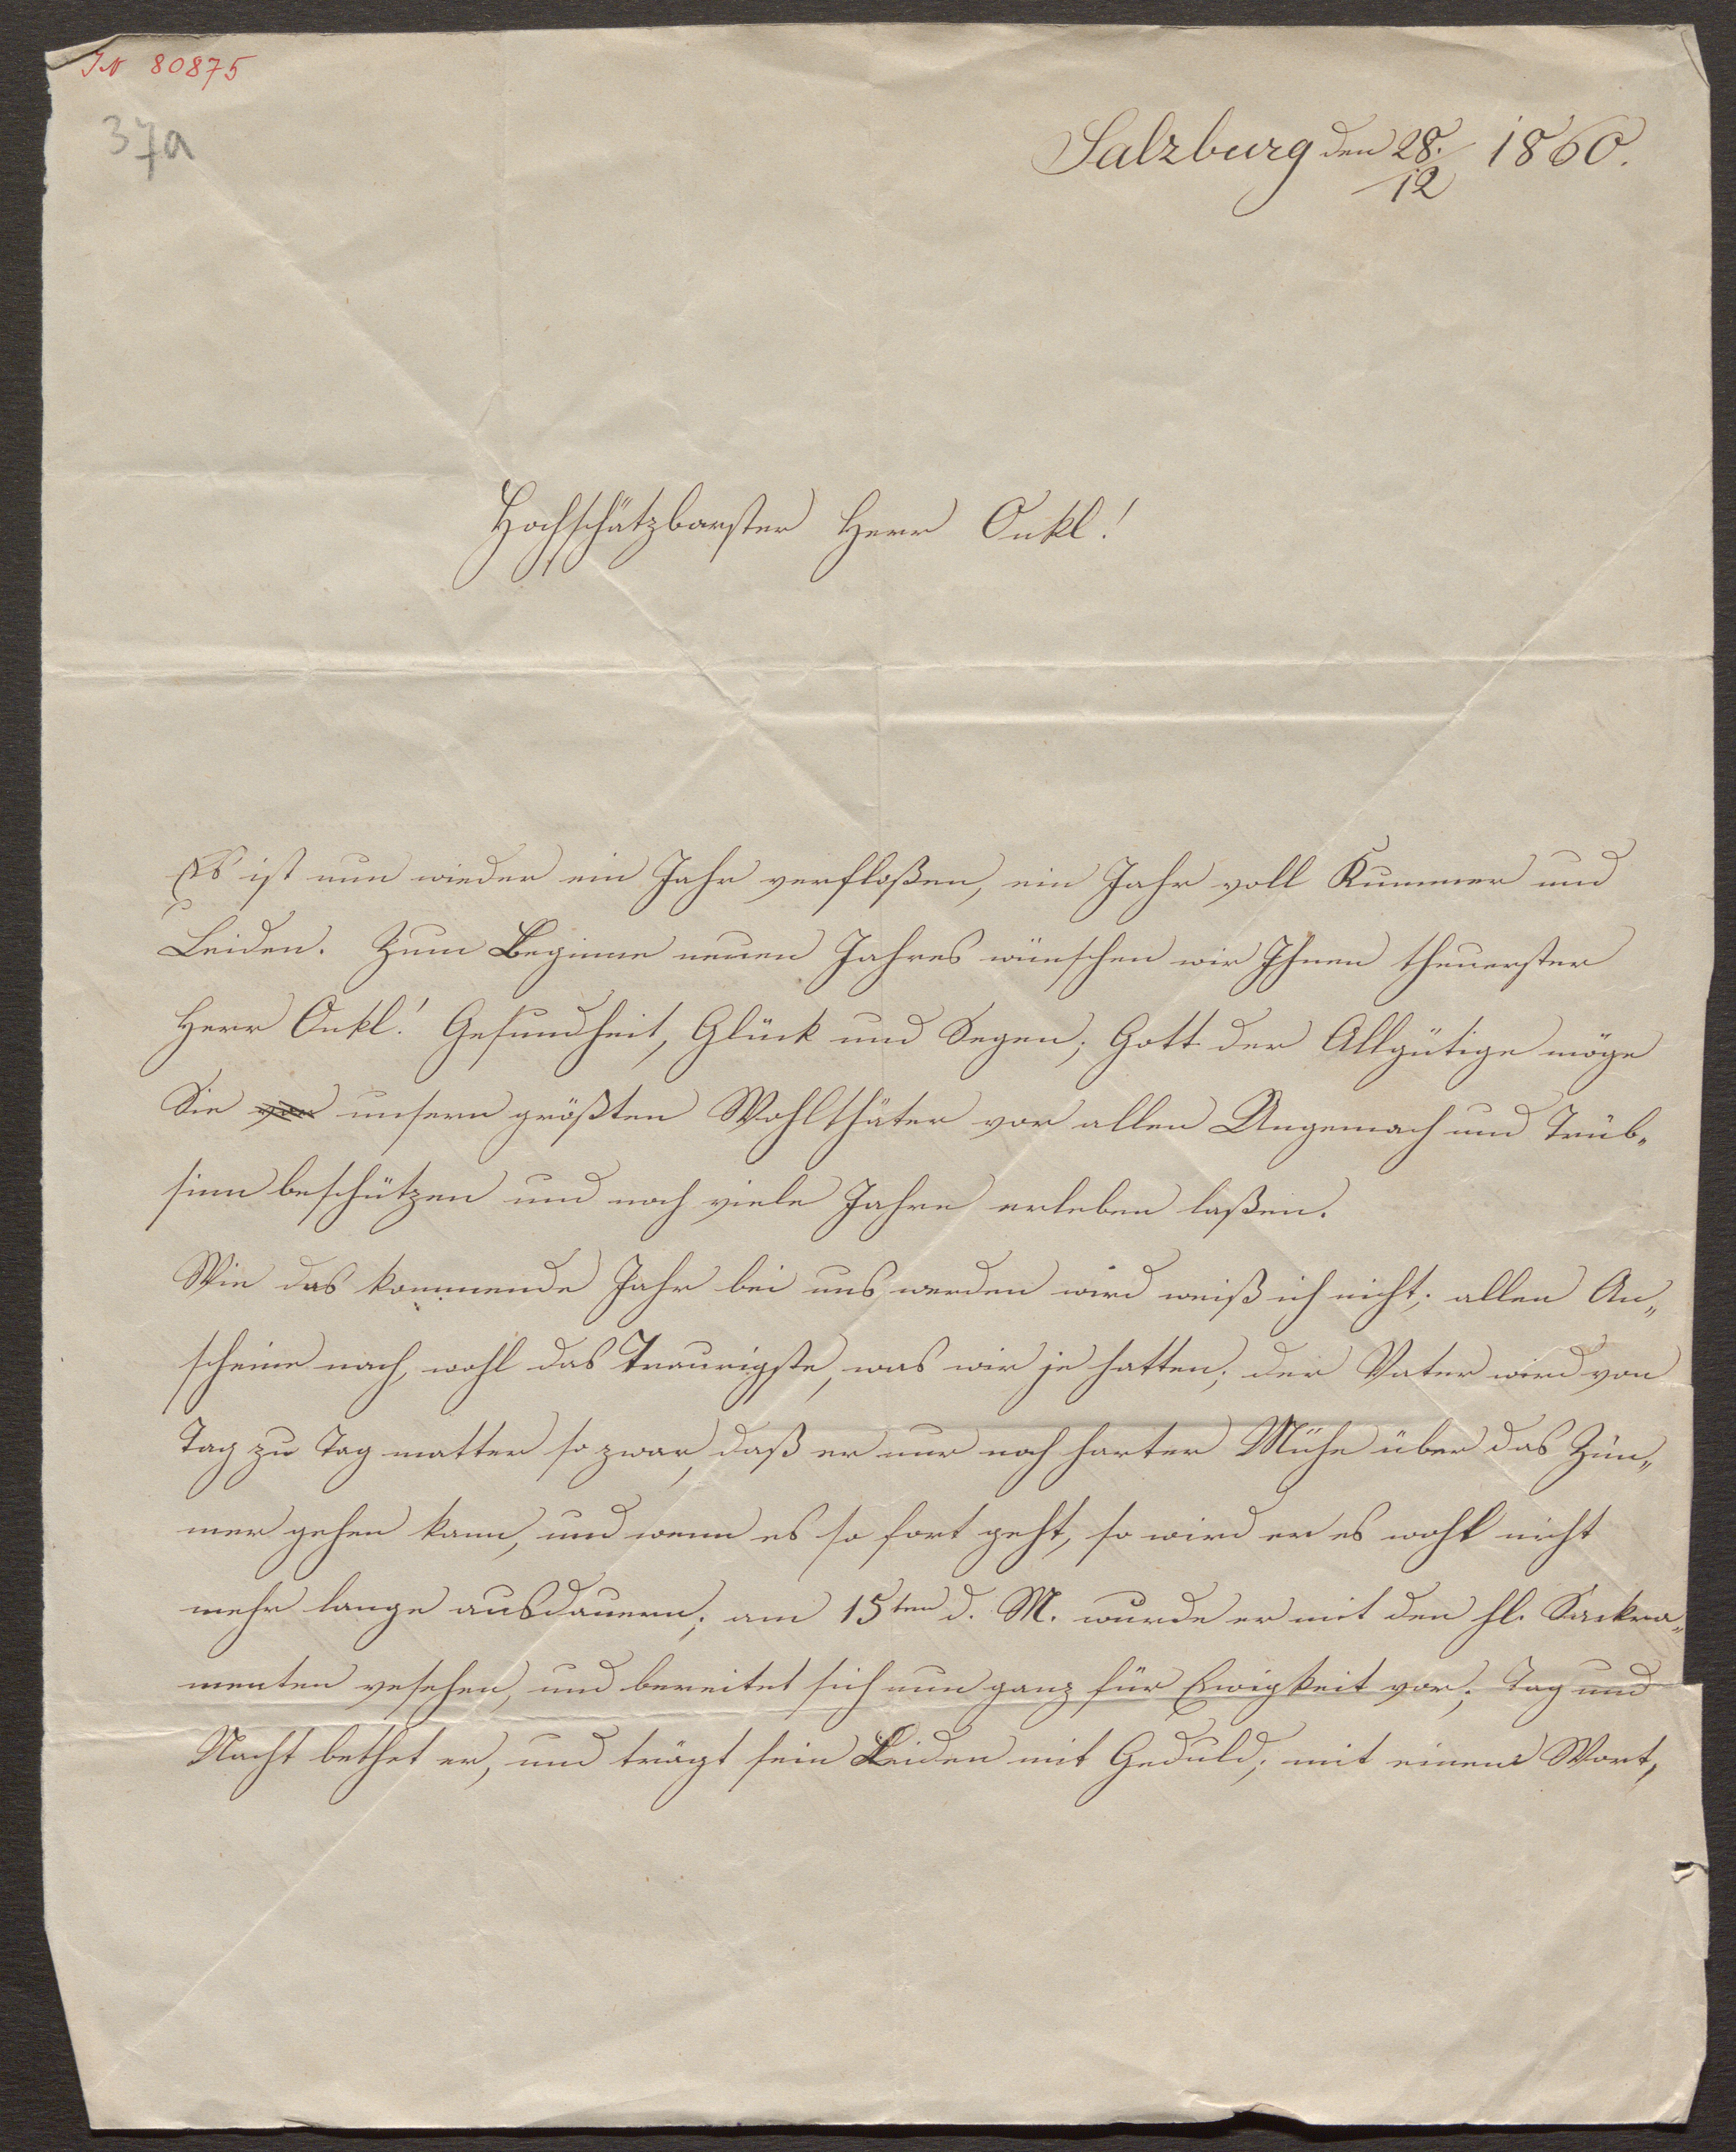 IN 80875
37a
Salzburg den 28./12 1860.
Hochschätzbarster Herr Onkl!
Es ist nun wieder ein Jahr verfloßen, ein Jahr voll Kummer und
Leiden. Zum Beginne neuen Jahres wünschen wir Ihnen theuerster
Herr Onkl! Gesundheit, Glück und Segen; Gott der Allgütige möge
Sie von unsern größten Wohlthäter vor allen Ungemach und Trüb„
sinn beschützen und noch viele Jahre erleben laßen.
Wie das kommende Jahr bei uns werden wird weiß ich nicht; allen An„
scheine nach, wohl das Traurigste, was wir je hatten; der Vater wird von
Tag zu Tag matter so zwar, daß er nur noch harter Mühe über das Zim„
mer gehen kann, und wenn es so fort geht, so wird er es wohl nicht
mehr lange ausdauern; am 15ten d. M. wurde er mit den hl. Sackra„
menten vesehen, und bereitet sich nun ganz für Ewigkeit vor; Tag und
Nacht bethet er, und trägt sein Leiden mit Geduld; mit einem Wort,